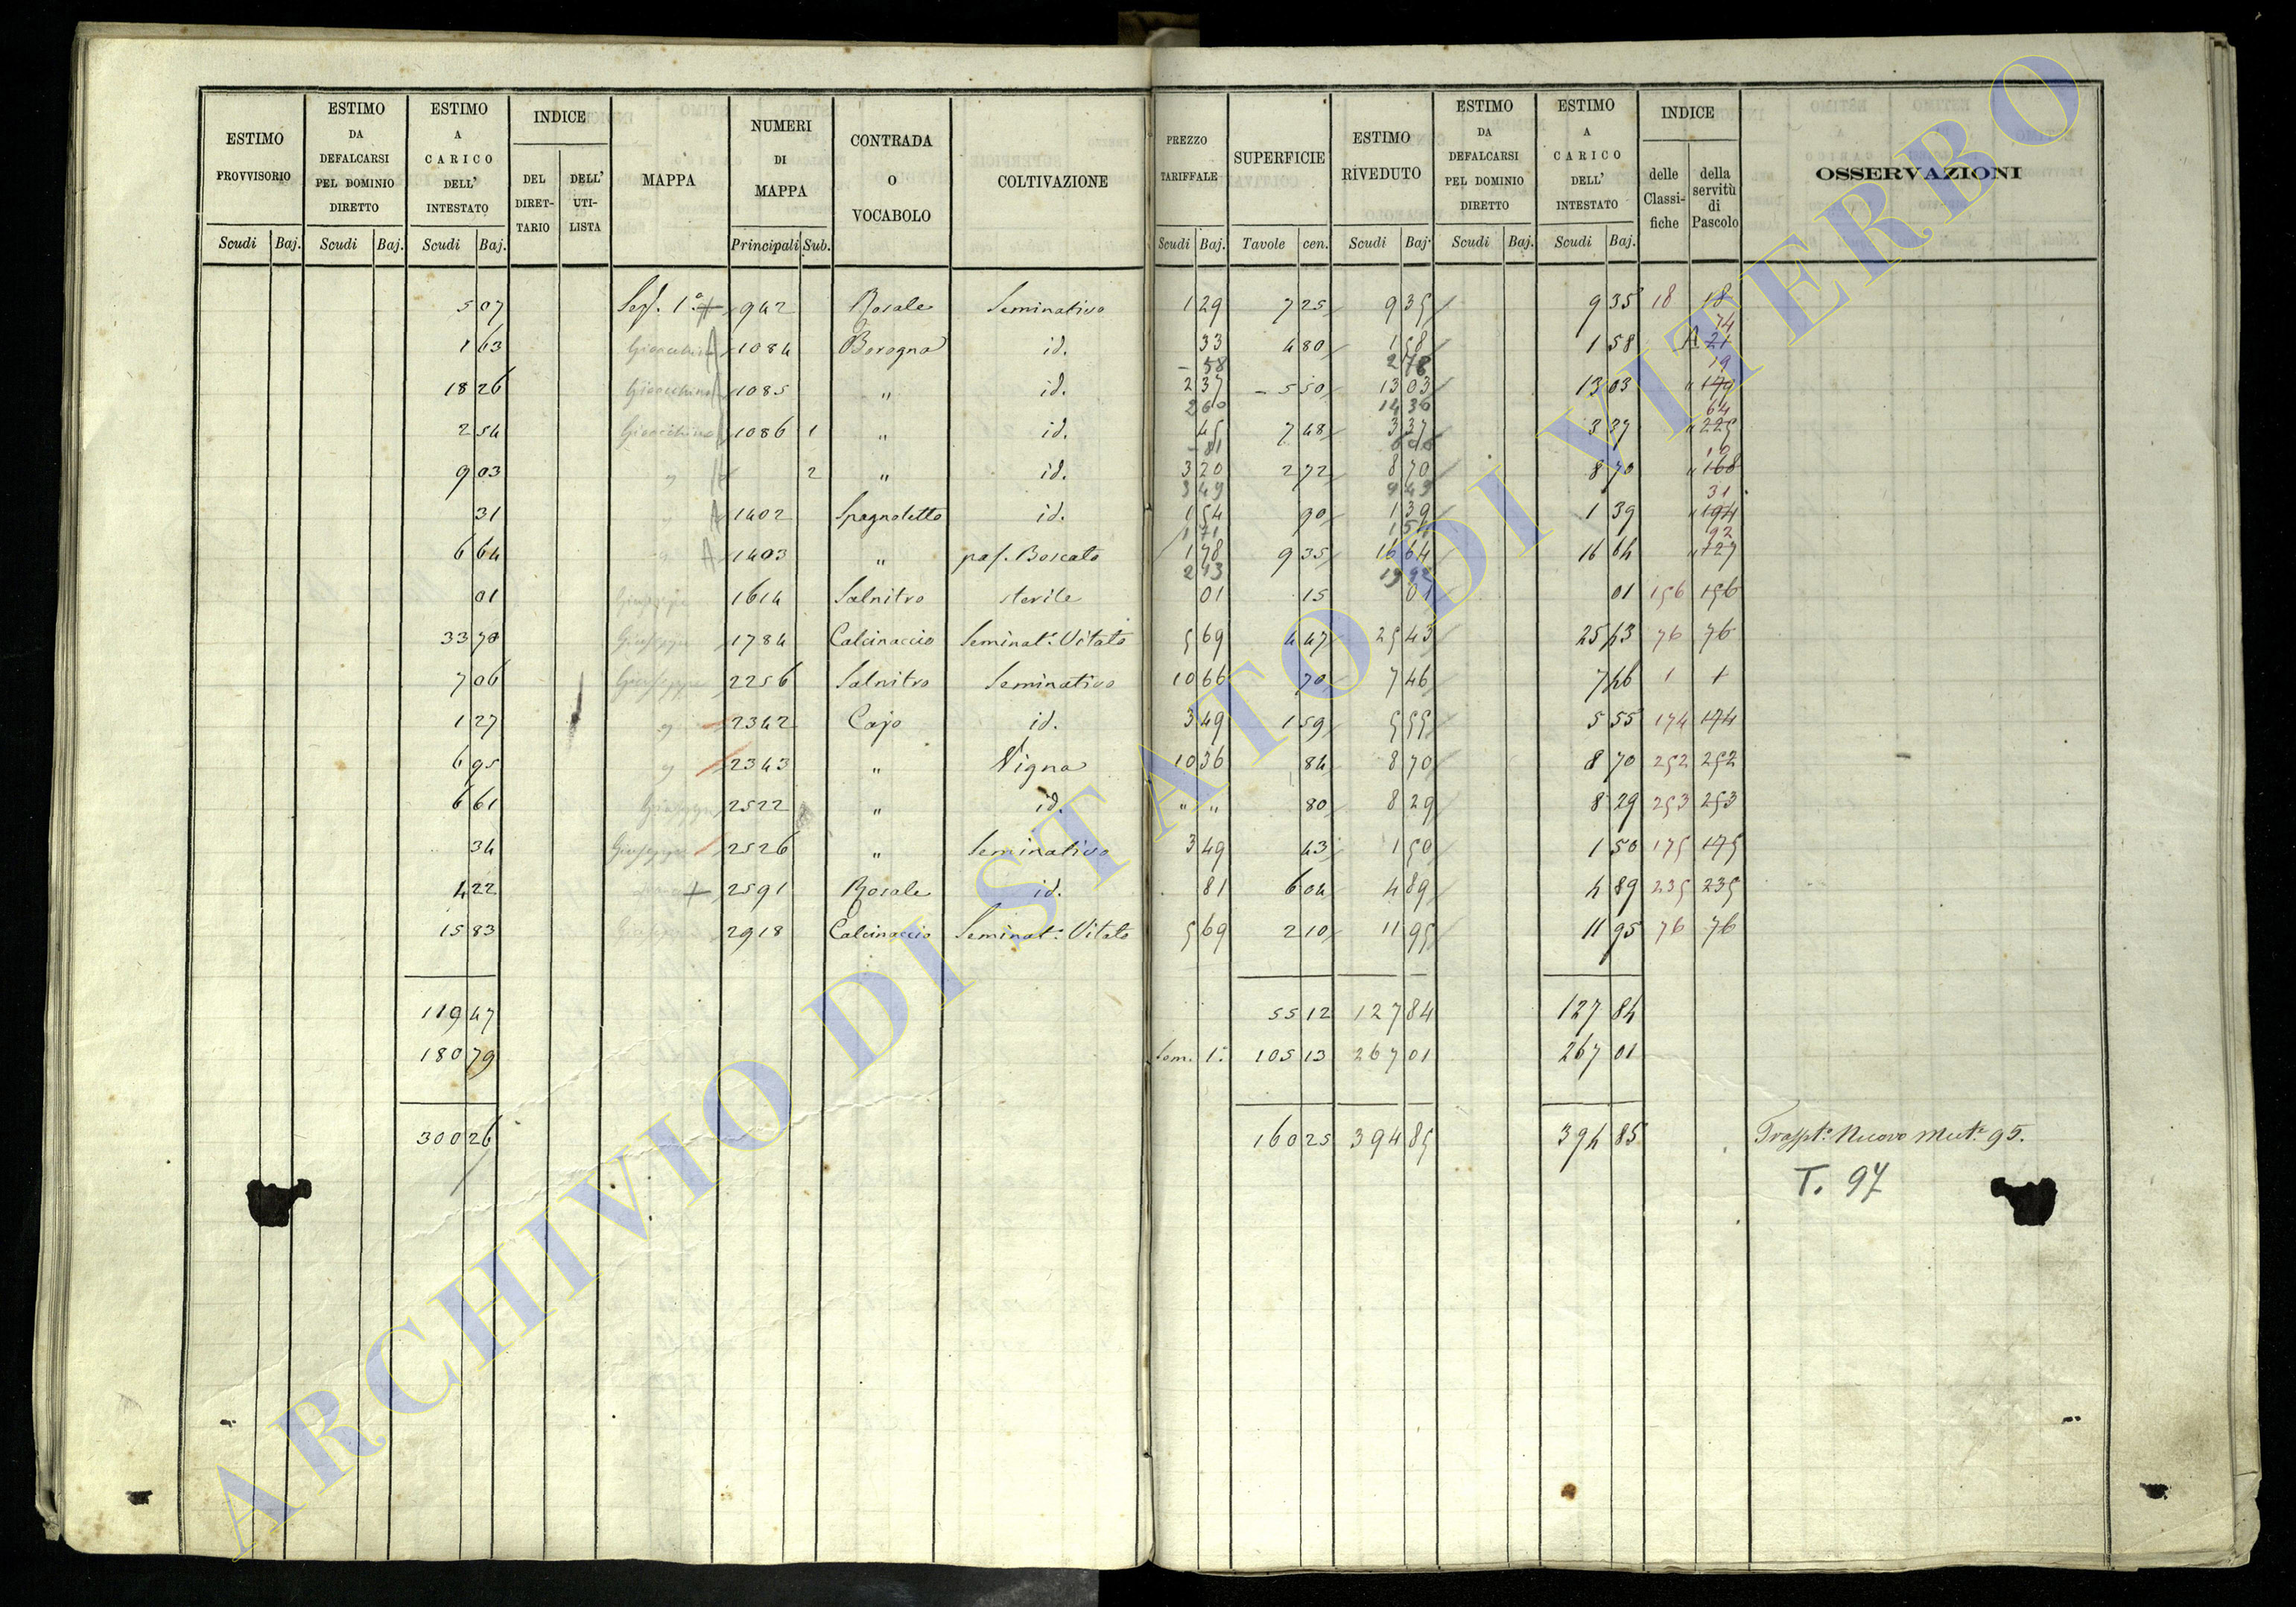 ESTIMO PROVVISORIO
Scudi Baj.
ESTIMO DA DEFALCARSI PEL DOMINIO DIRETTO
Scudi Baj.
ESTIMO A CARICO DELL' INTESTATO
Scudi Baj.
INDICE
DEL DIRET-TARIO
DELL' UTI-LISTA
MAPPA
NUMERI DI MAPPA
Principali Sub.
CONTRADA O VOCABOLO
COLTIVAZIONE
PREZZO TARIFFALE
Scudi Baj.
SUPERFICIE
Tavole cen.
ESTIMO RIVEDUTO
Scudi Baj.
ESTIMO DA DEFALCARSI PEL DOMINIO DIRETTO
Scudi Baj.
ESTIMO A CARICO DELL' INTESTATO
Scudi Baj.
INDICE
delle Classi-fiche
della servitù di Pascolo
OSSERVAZIONI
5 07 Sez. 1ª 942 Rosale Seminativo 1 29 7 25 9 35 9 35 18 18
74
1 63 Gioacchino 1084 Borogna id. 33 4 80 1 58 1 58 A 21
58 2 78 19
18 26 Gioacchino 1085 " id. 2 37 5 50 13 03 13 03 " 179
2 60 14 30 64
2 54 Gioacchino 1086 1 " id. 45 7 48 3 37 3 37 " 225
81 12
9 03 " 2 " id. 3 20 2 72 8 70 8 70 " 168
3 49 9 49 31
31 1402 Spagnoletto id. 1 54 90 1 39 1 39 " 194
1 71 1 54 92
6 64 1403 " pas. Boscato 1 78 9 35 16 64 16 64 " 727
2 13 19 92
01 Giuseppe 1614 Salnitro sterile 01 15 01 01 156 156
33 70 Giuseppe 1784 Calcinaccio Seminat. Vitato 5 69 4 47 25 43 25 43 76 76
7 06 Giuseppe 2256 Salnitro Seminativo 10 66 70 7 46 7 46 1 1
1 27 " 2342 Cajo id. 3 49 1 59 5 55 5 55 174 174
6 95 " 2343 " Vigna 10 36 84 8 70 8 70 252 252
6 61 Giuseppe 2522 " id. " " 80 8 29 8 29 253 253
34 Giuseppe 2526 " Seminativo 3 49 43 1 50 1 50 175 175
4 22 2591 Rosale id. 81 6 04 4 89 4 89 235 235
15 83 2918 Calcinaccio Seminat. Vitato 5 69 2 10 11 95 11 95 76 76
119 47 55 12 127 84 127 84
180 79 Som. 1ª 105 13 267 01 267 01
300 26 160 25 394 85 394 85 Traspt. Nuovo Mut. 95.
T. 97
ARCHIVIO DI STATO DI VITERBO